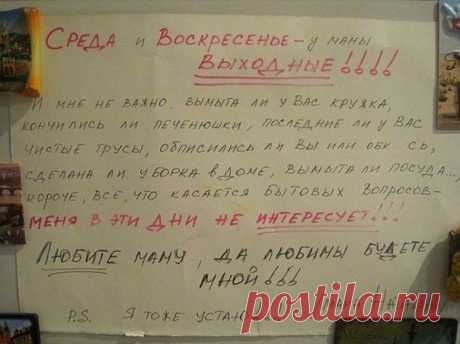 Среда и Воскресенье – у мамы
выходные!!!!
И мне не важно, вымыта ли у вас кружка,
кончились ли печенюшки, последние ли у вас
чистые трусы, обписились ли вы или обк сь,
сделана ли уборка в доме, вымыта ли посуда...,
короче, все, что касается бытовых вопросов –
меня в эти дни не интересует!!!
Любите маму, да любимы будете
мной!!!
P.S. Я тоже
postila.ru